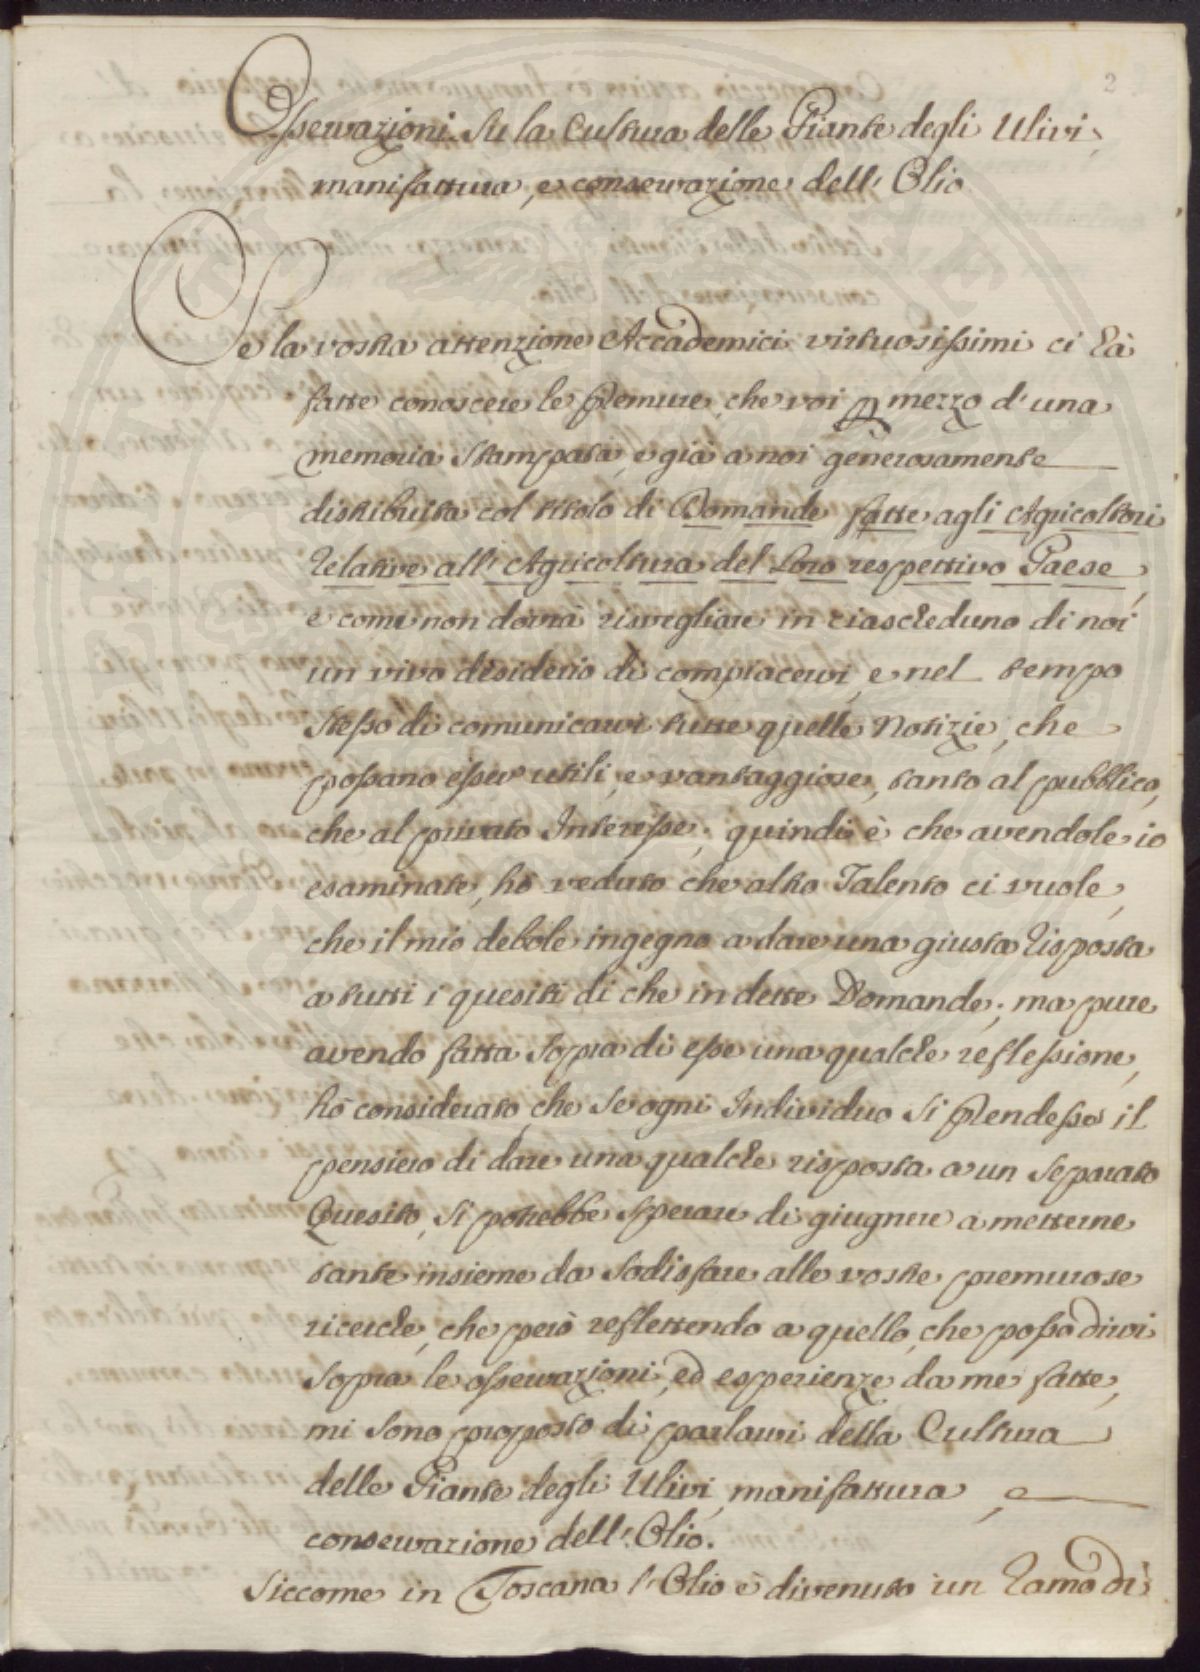 2
Osservazioni su la Cultura delle Piante degli Ulivi,
manifattura, e conservazione dell'Olio
Se la vostra attenzione Accademici virtuosissimi ci hà
fatte conoscere le Premure, che voi p mezzo d'una
memoria stampata, e già a noi generosamente
distribuita col titolo di Domande fatte agli Agricoltori
relative all'Agricoltura del Loro respettivo Paese,
e come non dovrà risvegliare in ciascheduno di noi
un vivo desiderio di compiacervi, e nel tempo
stesso di comunicarvi tutte quelle Notizie, che
possano esser utili, e vantaggiose, tanto al pubblico,
che al privato Interesse; quindi è che avendole io
esaminate, hò veduto che altro Talento ci vuole,
che il mio debole ingegno a dare una giusta risposta
a tutti i quesiti di che in dette Domande; ma pure
avendo fatta sopra di esse una qualche reflessione,
hò considerato, che se ogni Individuo si Prendesse il
pensiero di dare una qualche risposta a un separato
Quesito, si potrebbe sperare di giugnere a metterne
tante insieme da sodisfare alle vostre premurose
ricerche, che però reflettendo a quello, che posso dirvi
sopra le osservazioni, ed esperienze da me fatte,
mi sono proposto di parlarvi della Cultura
delle Piante degli Ulivi, manifattura, e
conservazione dell'Olio.
Siccome in Toscana l'Olio è divenuto un ramo di